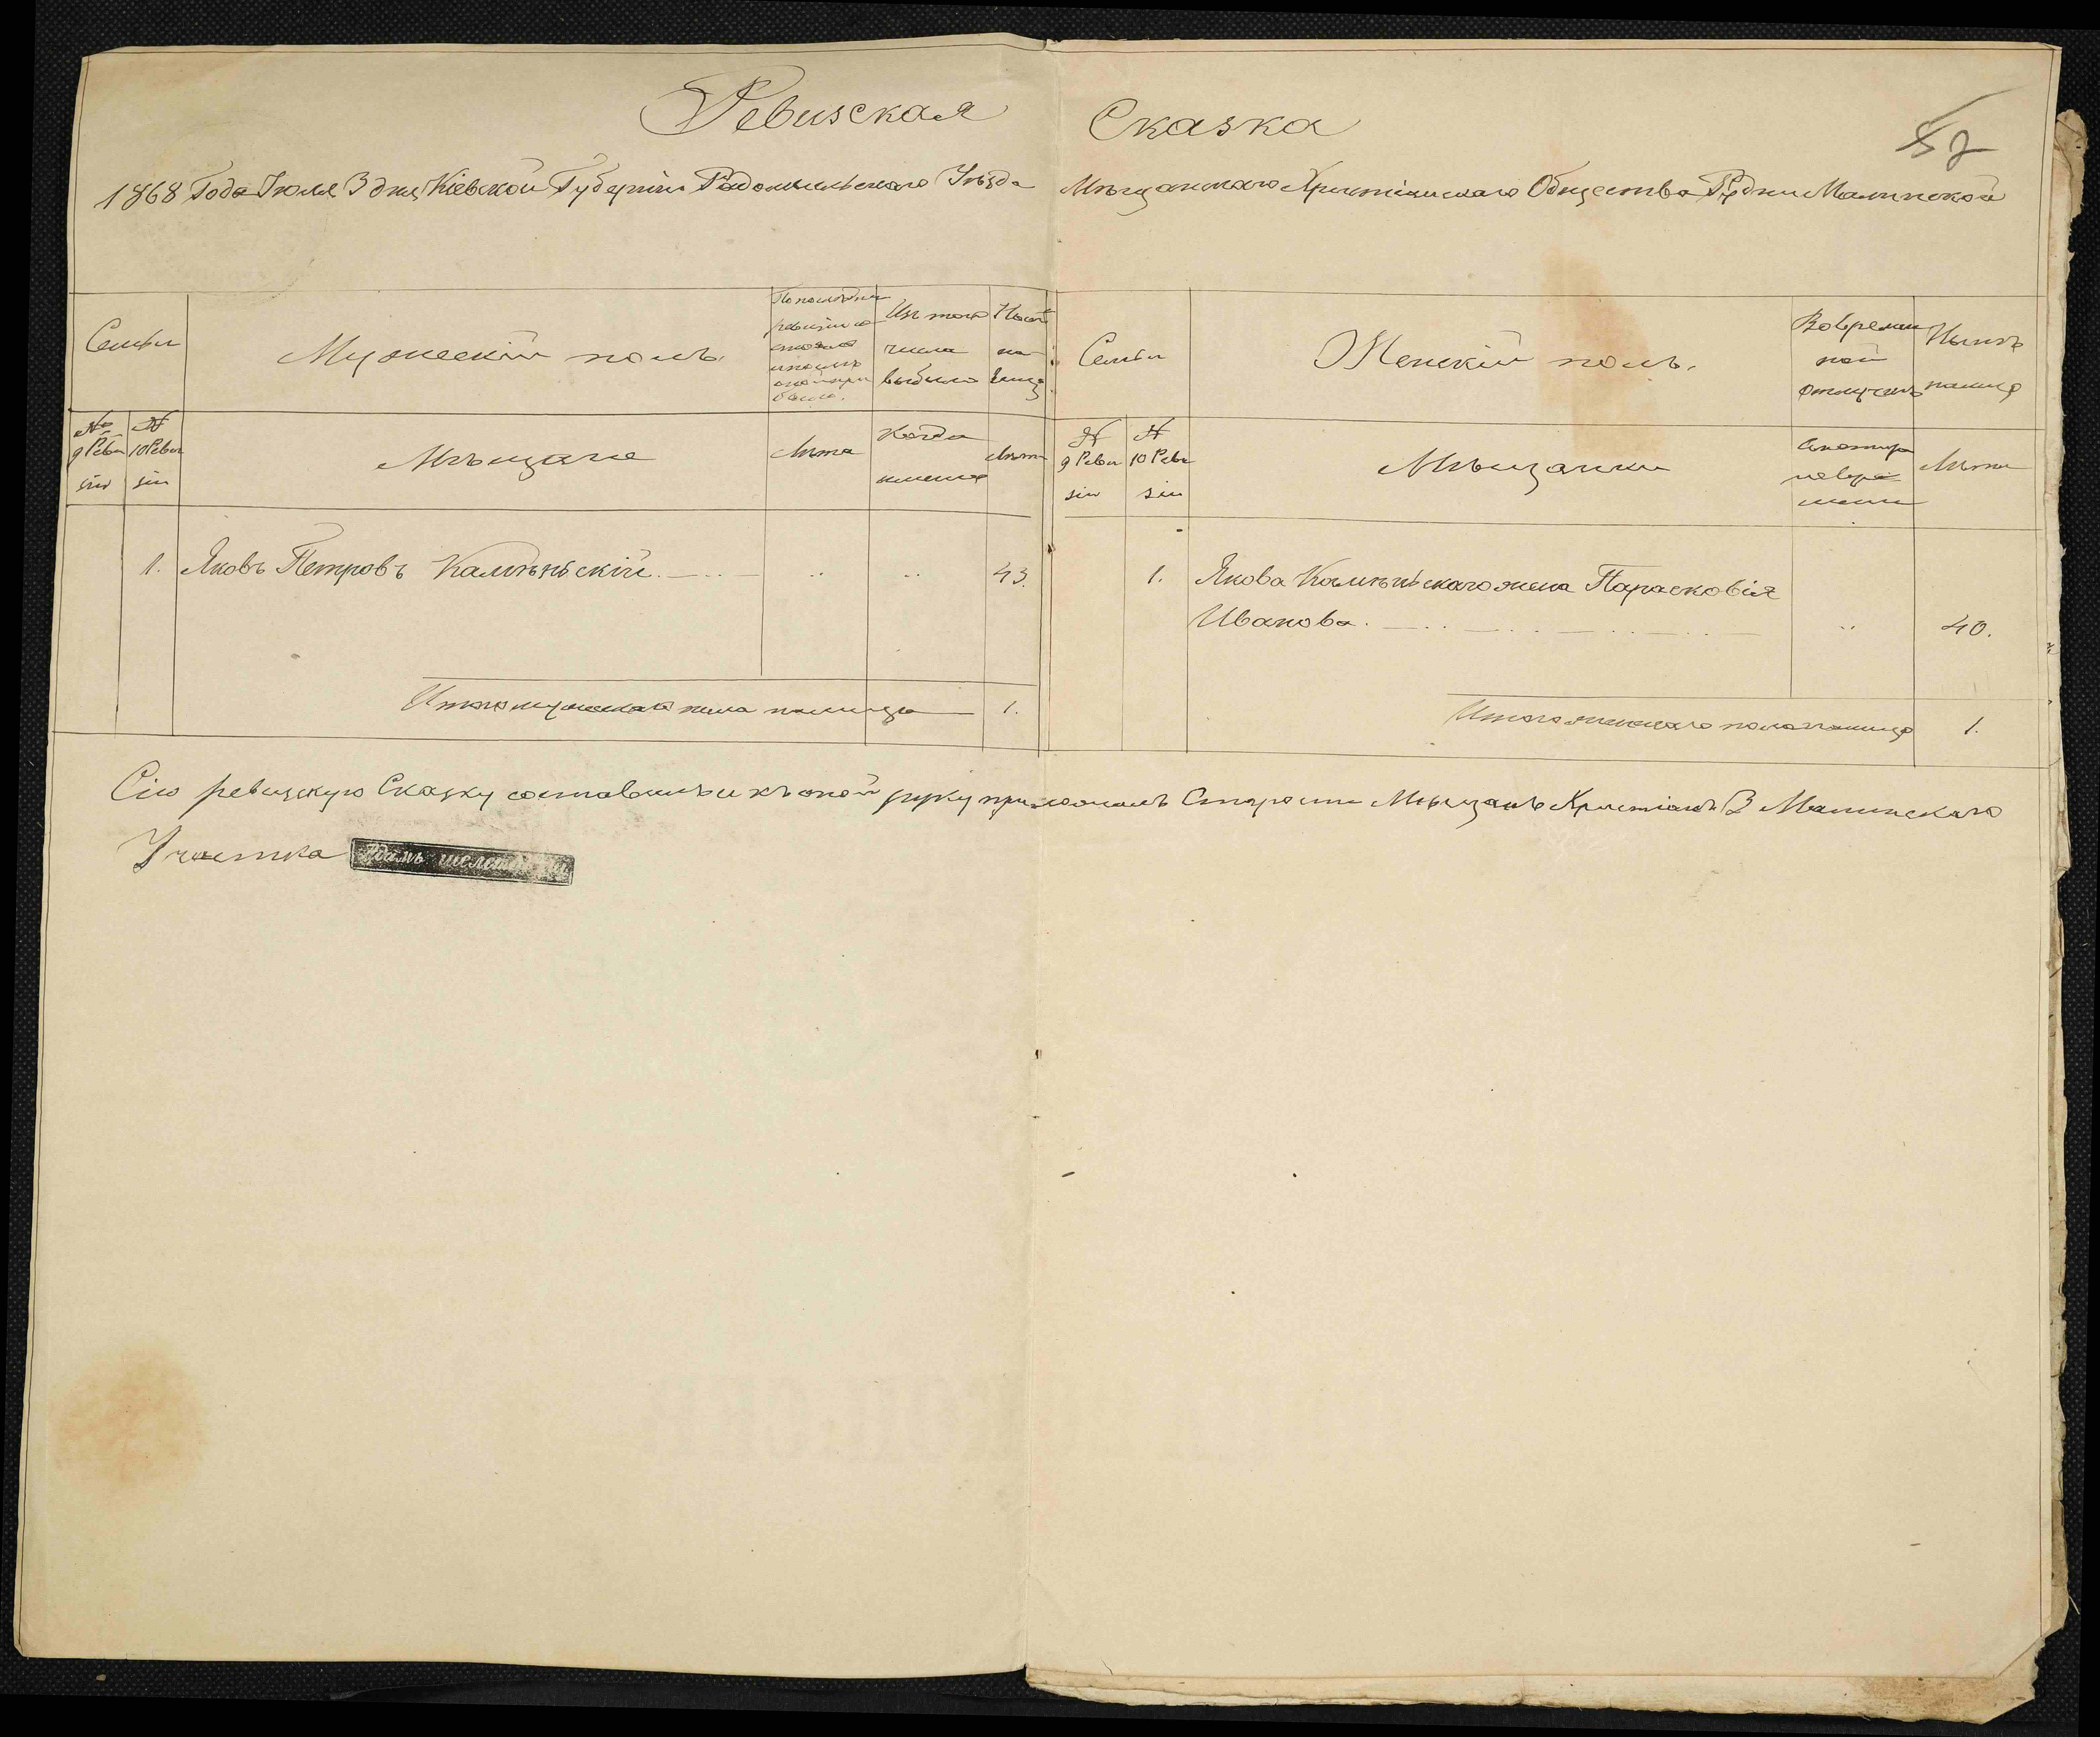 Ревизская Сказка
57
1868 Года Іюля 3 дня Кіевской Губерніи Радомысльскаго Уѣзда Мѣщанскаго Христіанскаго Общества Рудни Малинской
Семьи
Мужескій полъ.
По последней ревизіи состояло и после оной прибыло.
Изъ того числа выбыло
Ныне на лицо
Семьи
Женскій полъ.
Во временной отлучкѣ
Нынѣ налицо
№ 9 Ревизіи
№ 10 Ревизіи
Мѣщане
Лѣта
Когда именно
Лѣта
№ 9 Ревизіи
№ 10 Ревизіи
Мѣщанки
Съ котораго времени
Лѣта
1. Яковъ Петровъ Калинѣскій. 43.
1. Якова Калинѣскаго жена Парасковія
Иванова. 40.
Итого мужескаго пола налицо 1.
Итого женскаго пола налицо 1.
Сію ревизскую Сказку составилъ и къ оной руку приложилъ Староста Мѣщанъ Христіанъ 3 Малинскаго
Участка Адамъ